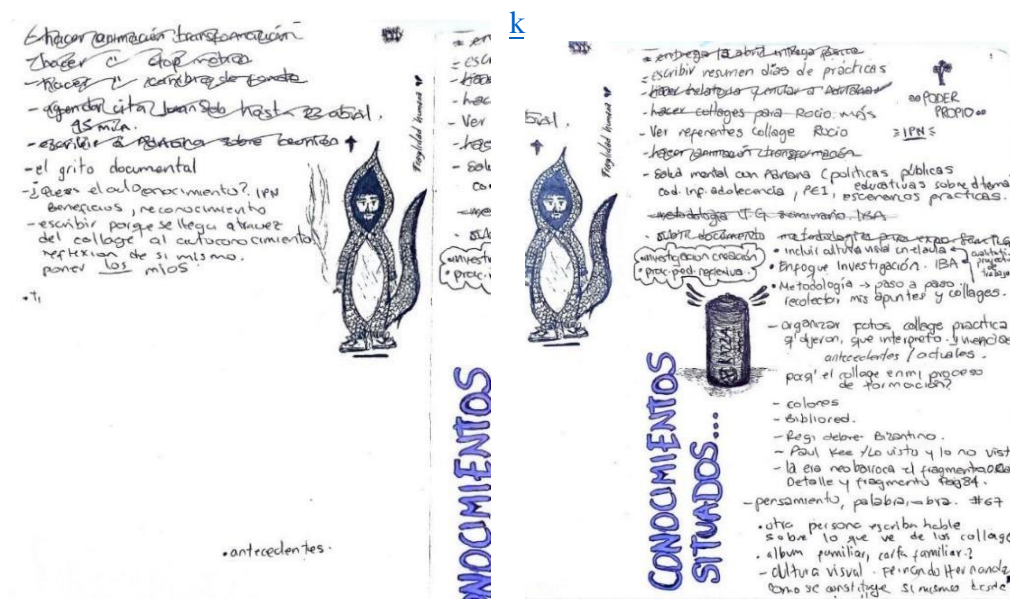 hacer animación transformación
hacer stop motion
- hacer cambio de fondo
- agendar cita Juan Seb hasta 23 abril.
15 min.
- escribir a Adriana sobre
- el grito documental
- ¿Que es el autoconocimiento? IPN
Beneficios, reconocimiento
- escribir porque se llega a travez
del collage al autoconocimiento
reflexion de si mismo.
poner los mios.
• antecedentes.
Fragilidad humana
ONOCIMIENTOS
k
Fragilidad humana
= entrega 19 abril entrega
= escribir resumen dias de prácticas
- hacer relatoria y enviar a Adriana
- hacer collages para Rocio. más
- Ver referentes collage Rocio
- hacer animación transformación
- Salud mental con Adriana (políticas públicas
cod. inf. adolecencia, PEI, educativas sobre d tema
escenarios prácticas.
PODER
PROPIO
IPN
- metodologia T.G seminario. IBA
- subir documento metodologias para expo
• investigacion creación
• prac. ped. reflexiva.
• incluir cultura visual en el aula
• Enfoque Investigación. IBA
• Metodología → paso a paso
recolectar mis apuntes y collages.
RAZZA
- organizar fotos collage practica
q' dijeron, que interpreto. y mencion
antecedentes / actuales.
porq' el collage en mi proceso
de formación?
- colores
- Bibliored.
- Regi debre- Bizantino.
- Paul Kee / Lo visto y lo no vist
- la era neobarroca el fragmento
Detalle y fragmento Pag 84.
- pensamiento, palabra, obra. #67
• otra persona escriba hable
sobre lo que ve de los collage
• album familiar, carta familiar?
- cultura visual - Fernando Hernandez
como se constituye si mismo desde
CONOCIMIENTOS
SITUADOS...